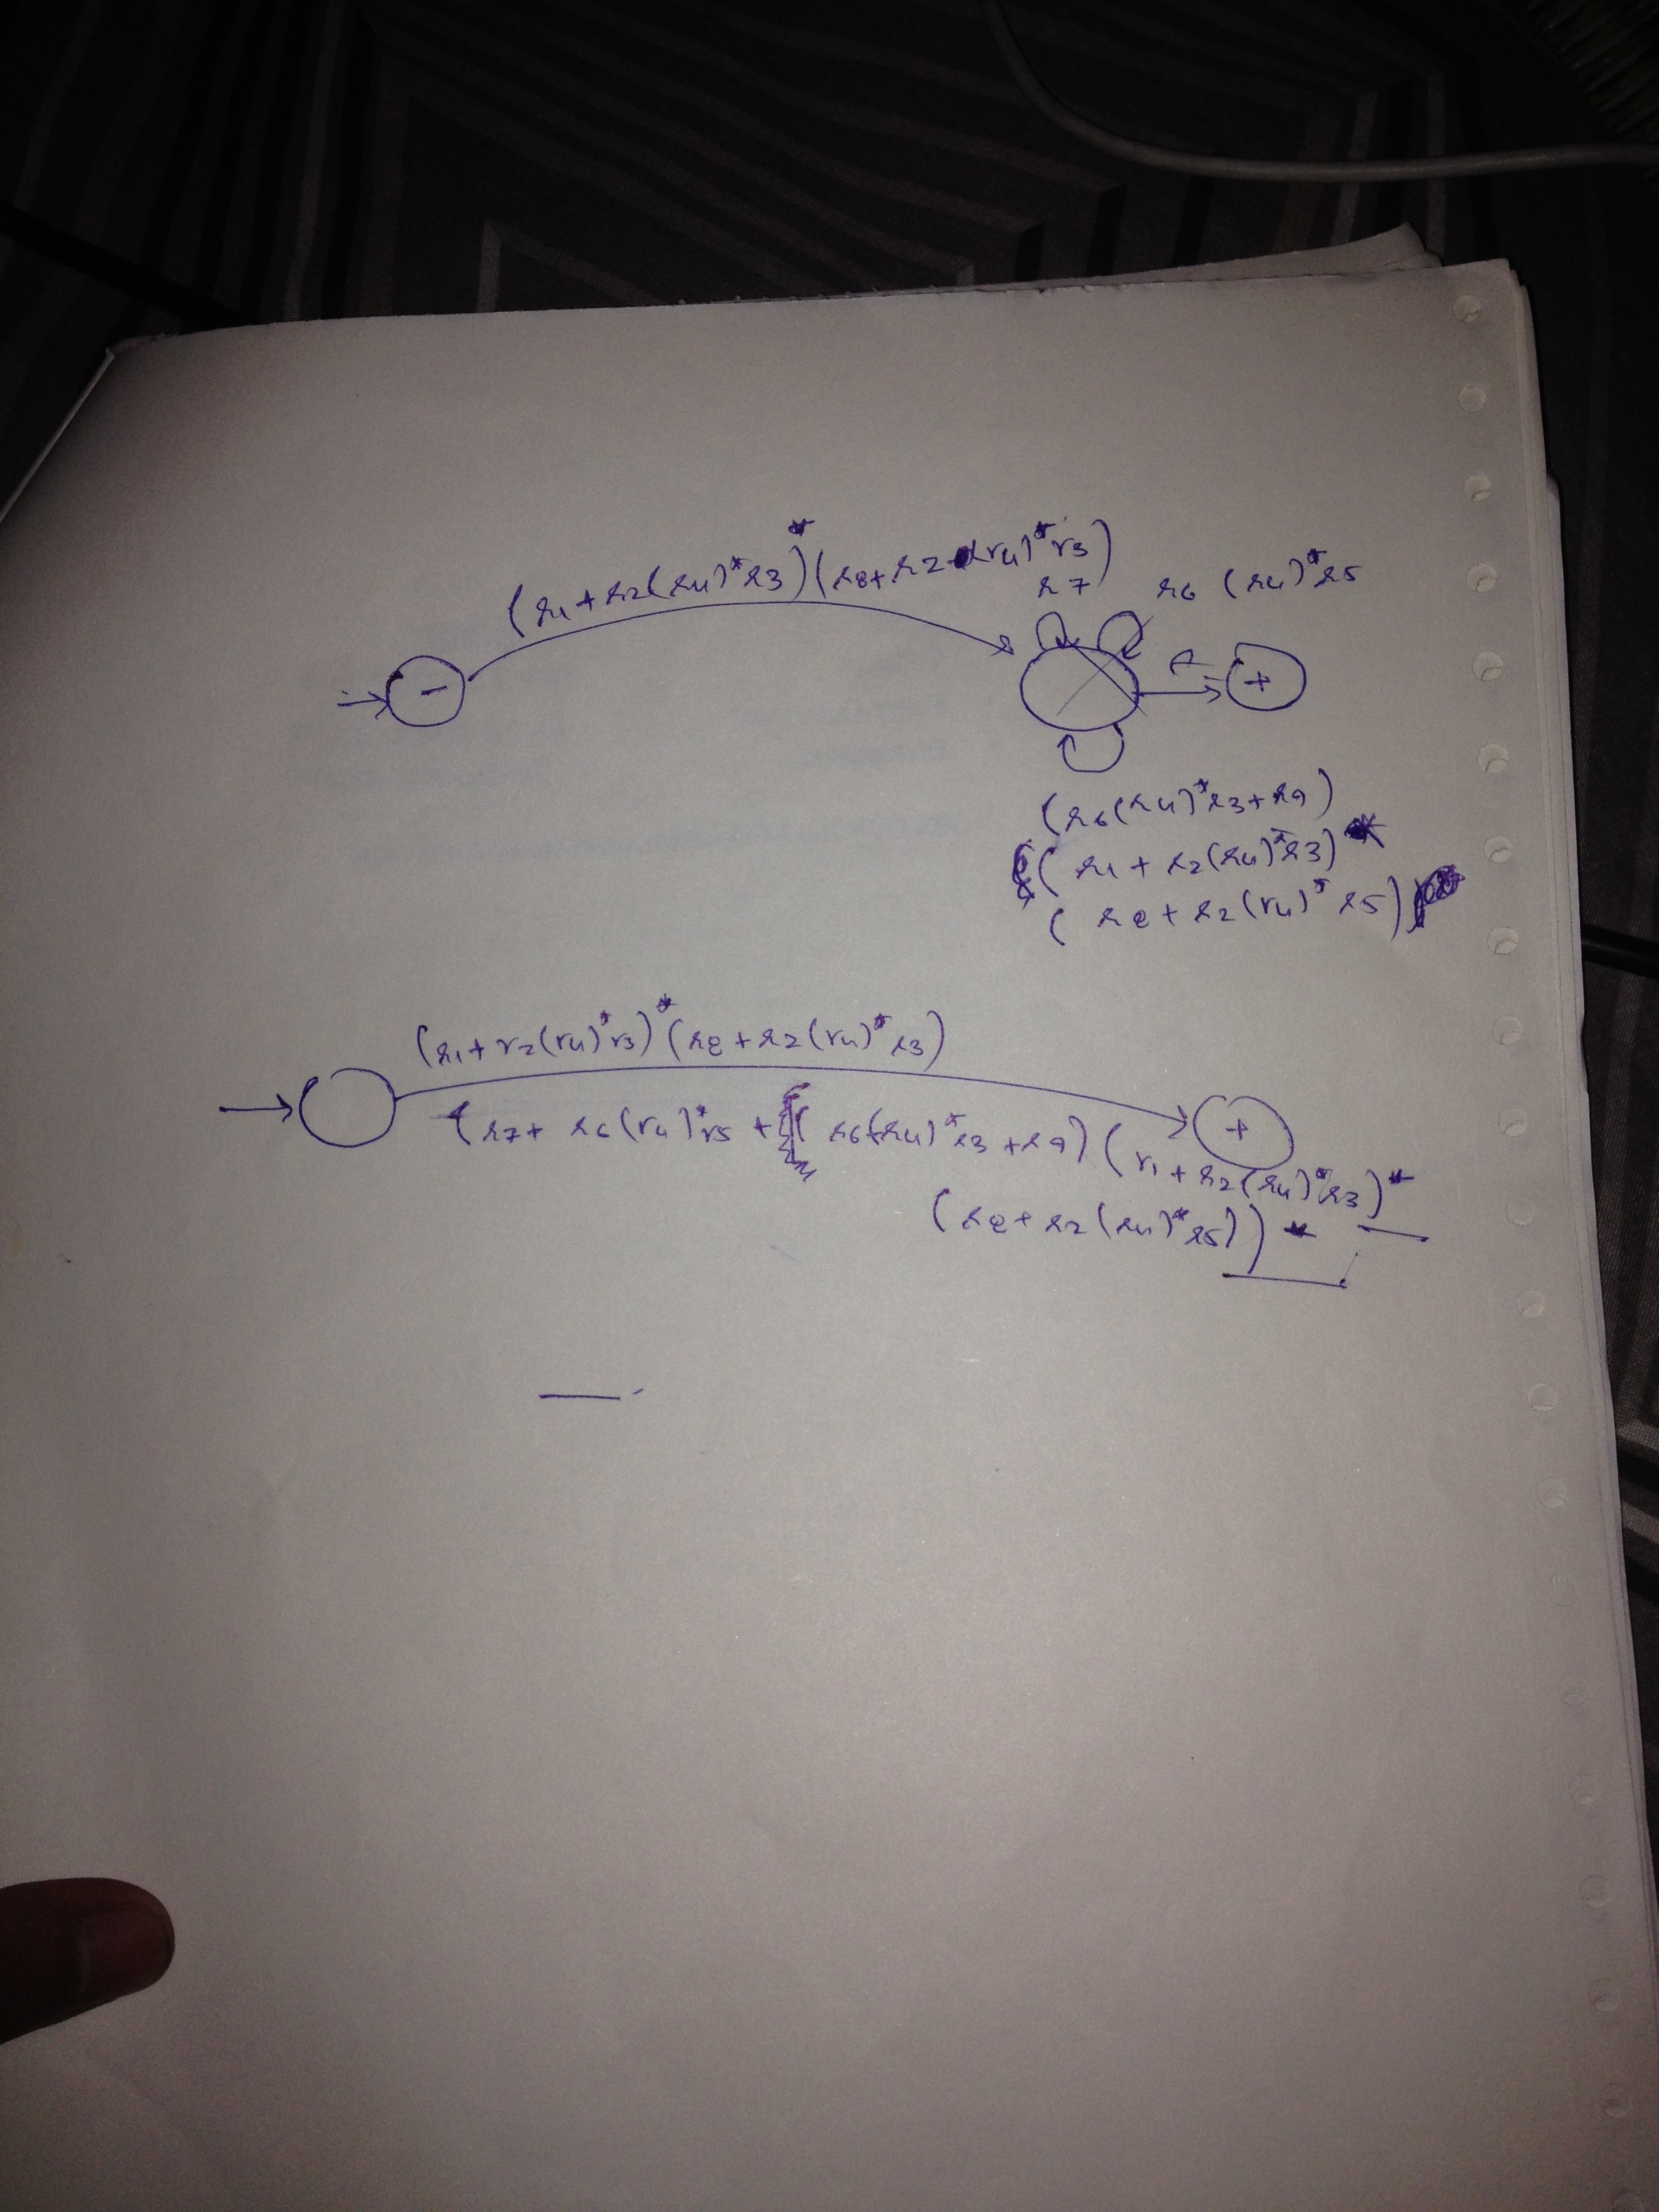 (r1+r2(r4)*r3)*(r8+r2(r4)*r3)
r7 r6 (r4)*r5
-
+
(r6(r4)*r3+r9)
(r1+r2(r4)*r3)*
(r8+r2(r4)*r5)
(r1+r2(r4)*r3)*(r8+r2(r4)*r3)
(r7+ r6(r4)*r5 + (r6(r4)*r3+r9)(r1+r2(r4)*r3)*
+
(r8+r2(r4)*r5))*